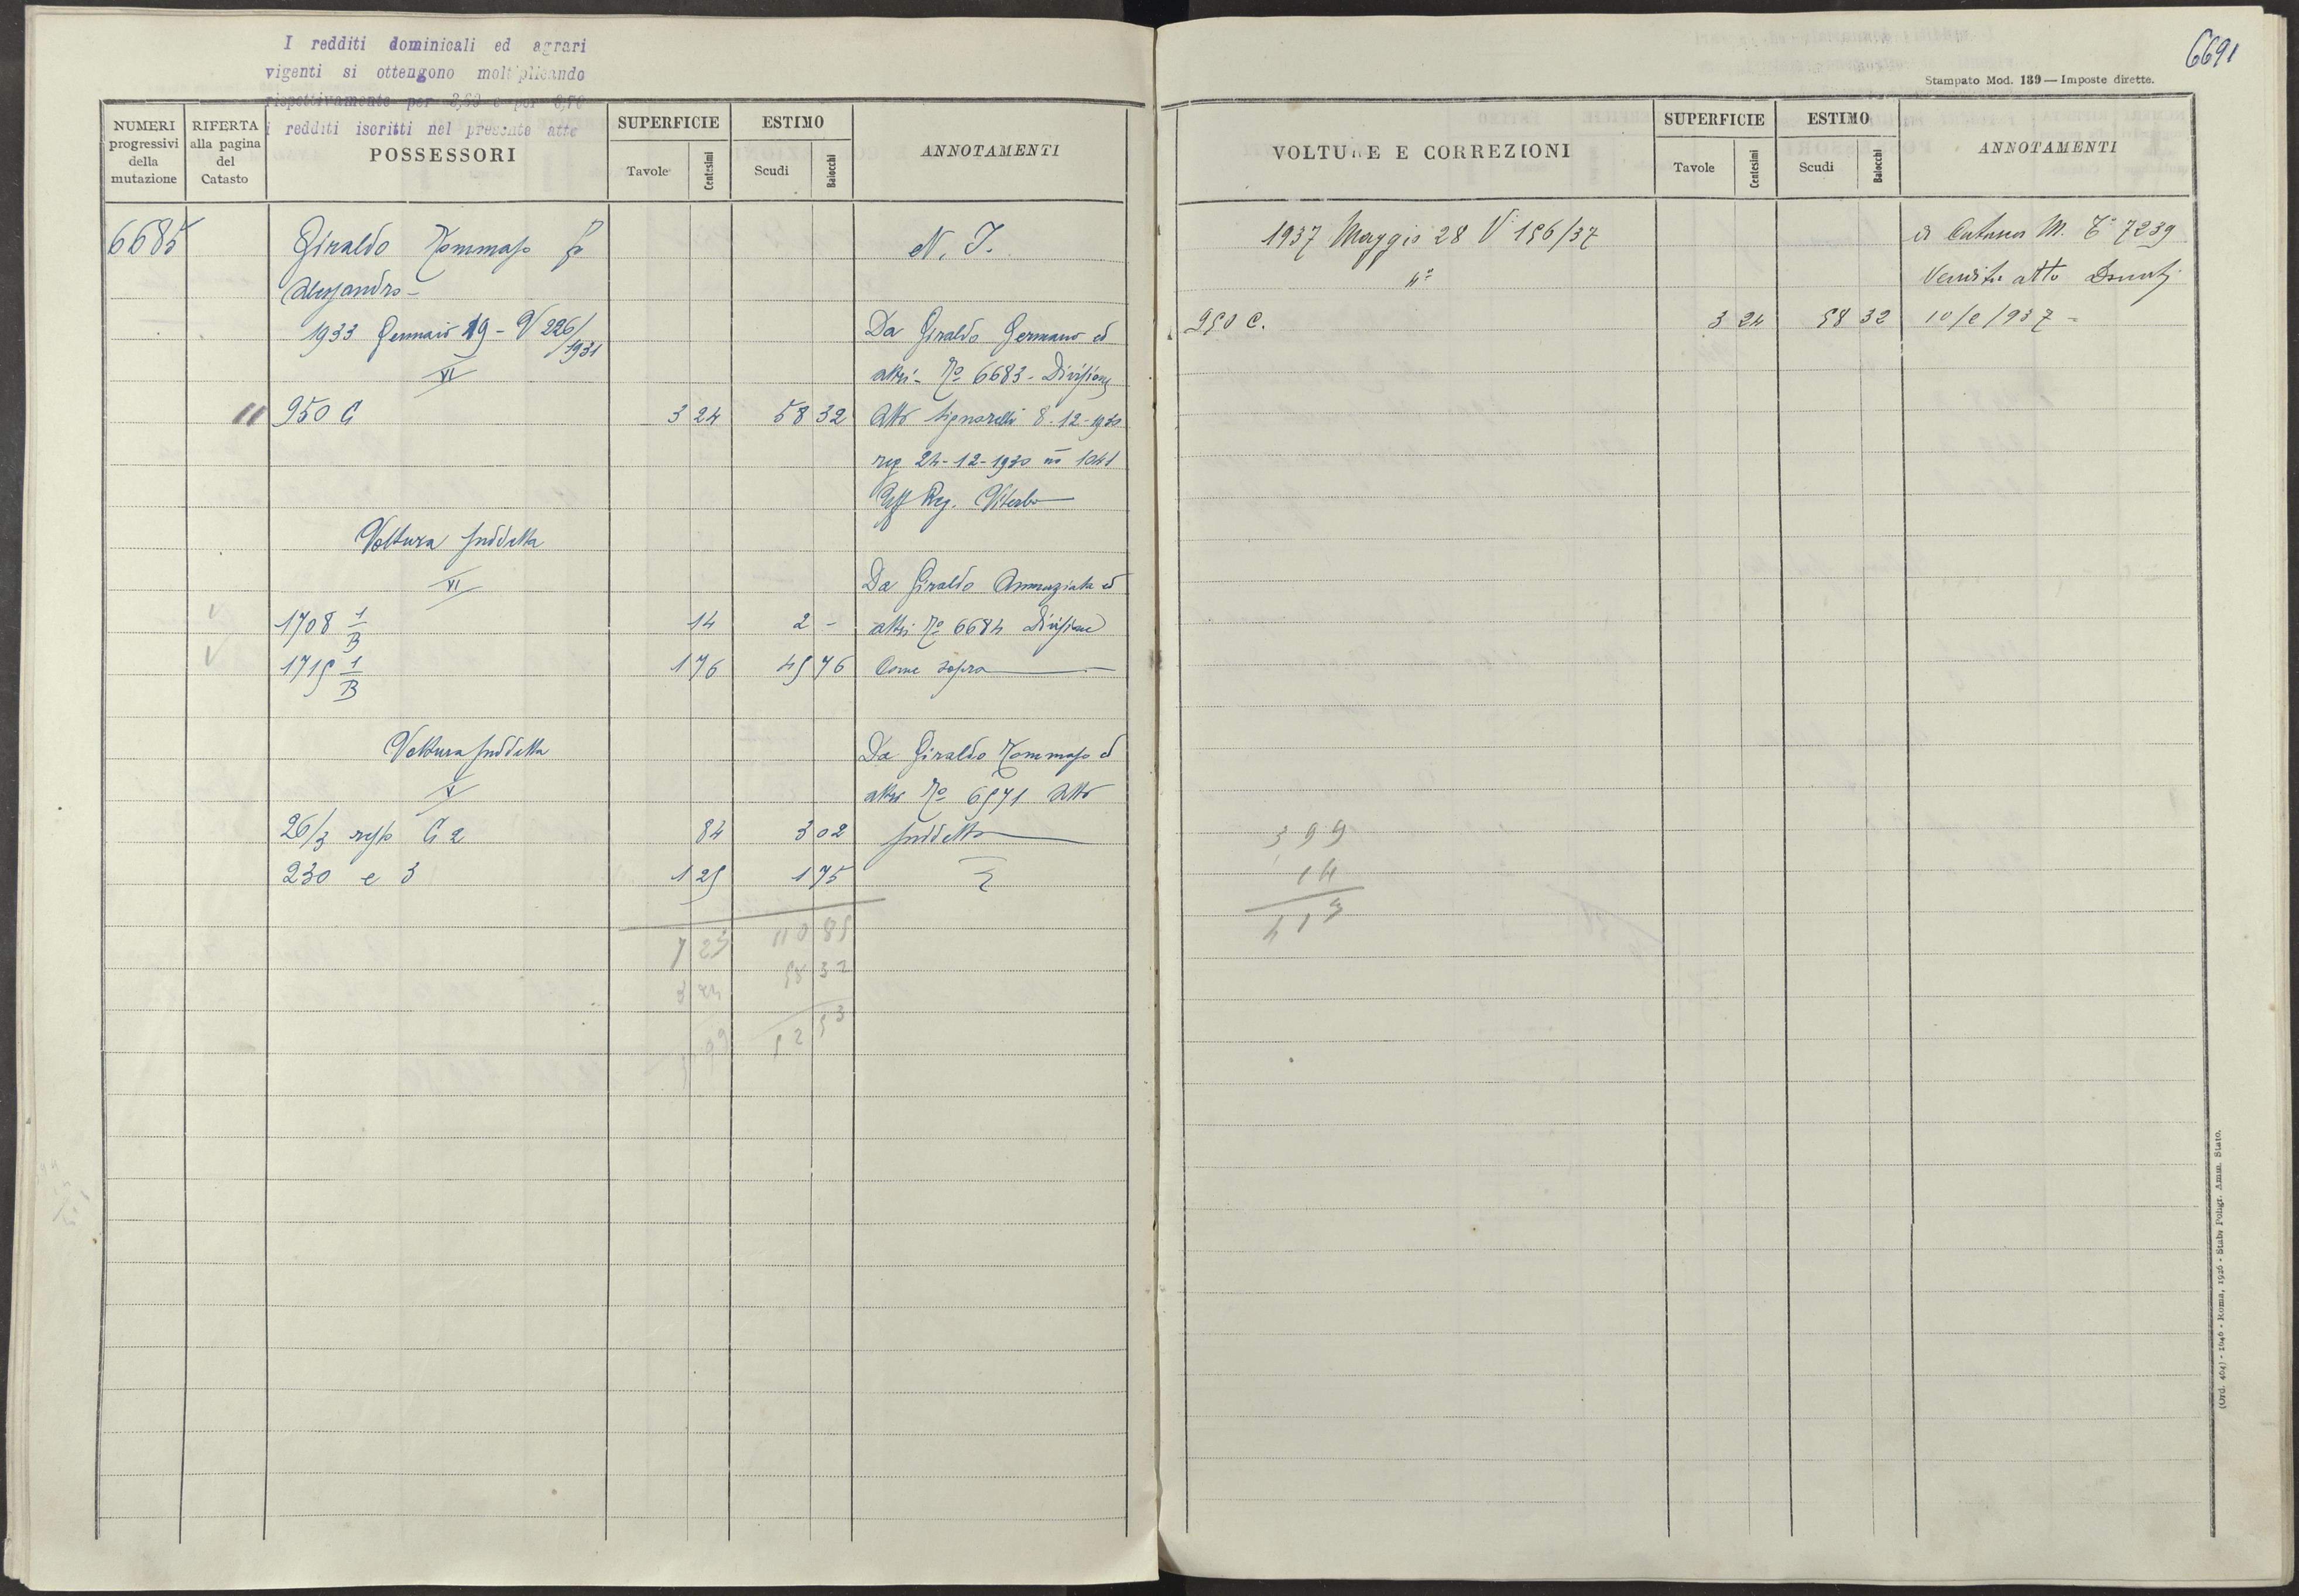 I redditi dominicali ed agrari
vigenti si ottengono moltiplicando
rispettivamente per 3,60 e per
i redditi iscritti nel presente atto
NUMERI progressivi della mutazione
RIFERTA alla pagina del Catasto
POSSESSORI
SUPERFICIE
Tavole Centesimi
ESTIMO
Scudi Baiocchi
ANNOTAMENTI
6685 Giraldo Tommaso fu N. I.
Alessandro -
1933 Gennaio 19 - V 226/1931 Da Giraldo Germano ed
VI altri - No 6683 - Divisione
950 C 3 24 58 32 Atto Signorelli 8-12-1930
reg 24-12-1930 no 1041
Uff Reg. Viterbo
Voltura suddetta
VI Da Giraldo Annunziata ed
1708 1/B 14 2 - altri No 6684 Divisione
1715 1/B 1 76 45 76 Come sopra
Voltura suddetta Da Giraldo Tommaso ed
V altri No 6571 Atto
26/3 C 2 84 3 02 suddetto
230 e 3 1 25 1 75
7 23 110 85
3 24 58 32
3 99 52 53
6691
Stampato Mod. 139 — Imposte dirette.
VOLTURE E CORREZIONI
SUPERFICIE
Tavole Centesimi
ESTIMO
Scudi Baiocchi
ANNOTAMENTI
1937 Maggio 28 V 156/37 7239
Vendita atto
950 C. 3 24 58 32
399
14
413
(Ord. 404) - 1646 - Roma, 1926 - Stab. Poligr. Amm. Stato.